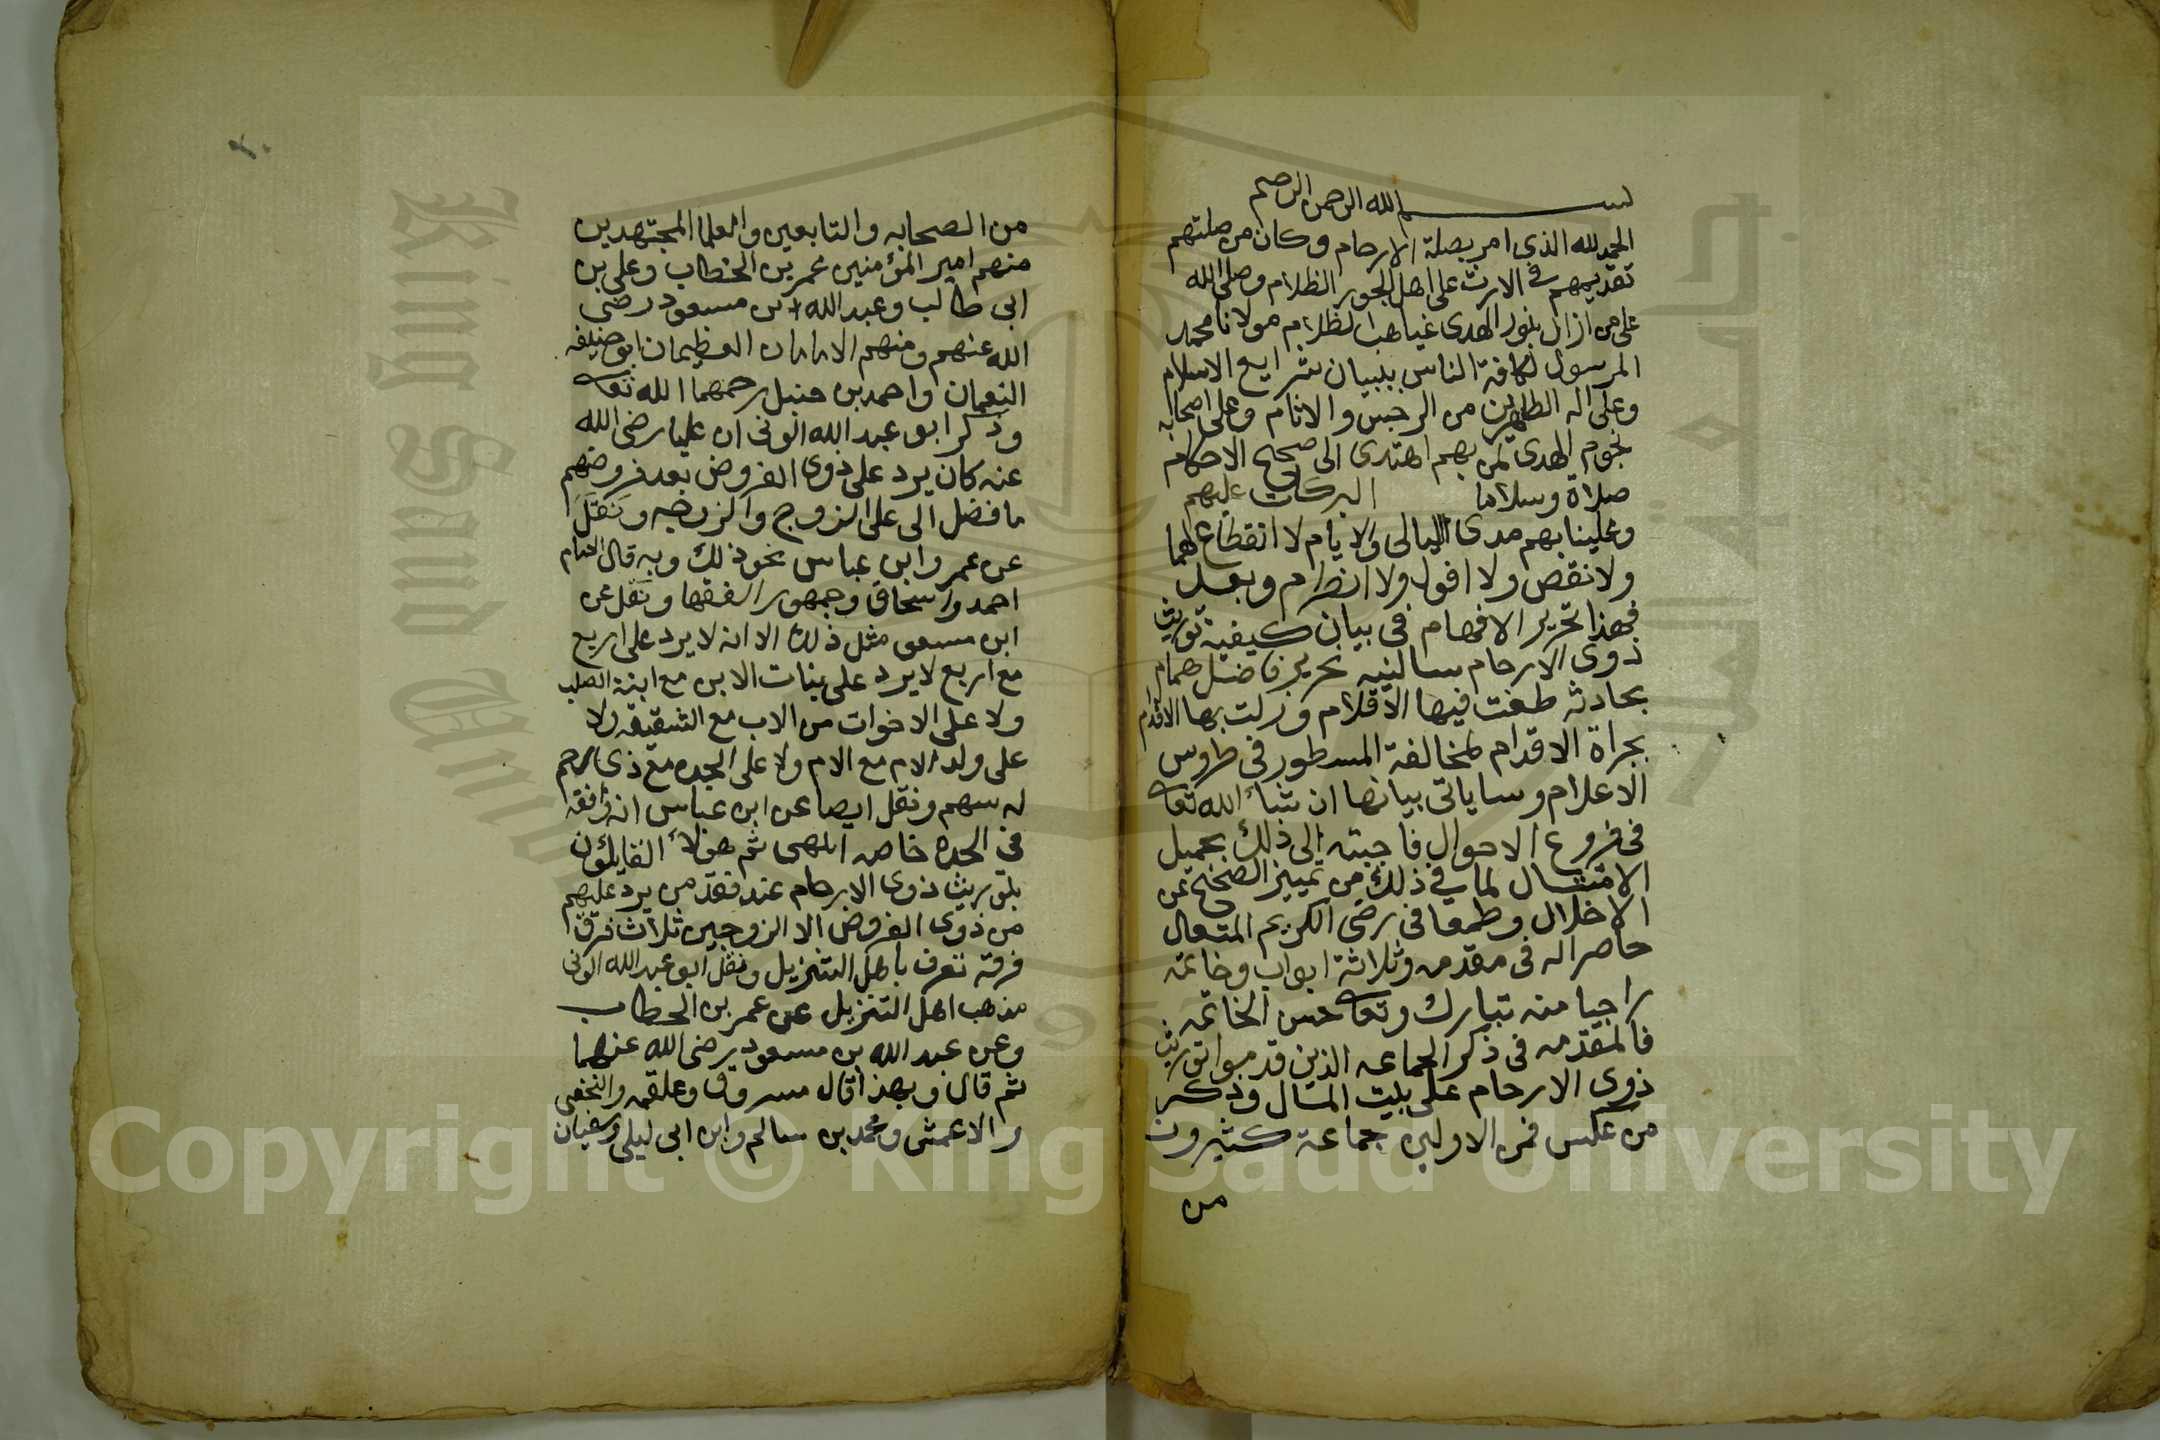 بسم الله الرحمن الرحيم
الحمد لله الذي امر بصلة الارحام وكان من صلتهم
تقديمهم في الارث على اهل الجور الظلام وصلى الله
على من ازال بنور الهدى غياهب الظلام مولانا محمد
المرسول لكافة الناس ببيان شرايع الاسلام
وعلى اله الطاهرين من الرجس والاثام وعلى اصحابه
نجوم الهدى لمن بهم اهتدى الى صحيح الاحكام
صلاة وسلاما البركات عليهم
وعلينا بهم مدى الليالي والايام لا انقطاع لهما
ولا نقص ولا افول ولا انصرام وبعد
فهذا تحرير الافهام في بيان كيفية توريث
ذوي الارحام سالنيه تحرير فاضل همام
بحادثه طغت فيها الاقلام وزلت بها الاقدام
بجراة الاقدام لمخالفة المسطور في طروس
الاعلام وساياتي بيانها ان شاء الله تعا
في فروع الاحوال فاجبته الى ذلك بجميل
الامتثال لما في ذلك من تمييز الصحيح عن
الاخلال وطمعا في رضى الكريم المتعال
حاصرا له في مقدمه وثلاثة ابواب وخاتمه
راجيا منه تبارك وتعا حسن الخاتمه
فالمقدمه في ذكر الجماعه الذين قدموا توريث
ذوي الارحام على بيت المال وذكر
من عكس فمن الاولين جماعة كثيرون
من
من الصحابه والتابعين والعلما المجتهدين
منهم امير المؤمنين عمر بن الخطاب وعلي بن
ابي طالب وعبد الله ابن مسعود رضي
الله عنهم ومنهم الامامان العظيمان ابو حنيفه
النعمان واحمد بن حنبل رحمهما الله تعا
وذكر ابو عبد الله الوني ان عليا رضي الله
عنه كان يرد على ذوي الفروض بعد فروضهم
ما فضل الى على الزوج والزوجه ونقل
عن عمر وابن عباس نحو ذلك وبه قال الامام
احمد واسحاق وجمهور الفقها ونقل عن
ابن مسعو مثل ذلك الا انه لا يرد على اربع
مع اربع لا يرد على بنات الابن مع ابنة الصلب
ولا على الاخوات من الاب مع الشقيقه ولا
على ولد الام مع الام ولا على الجده مع ذي رحم
له سهم ونقل ايضا عن ابن عباس انه وافقه
في الجده خاصه انتهى ثم هولاء القايلون
بتوريث ذوي الارحام عند فقد من يرد عليهم
من ذوي الفروض الا الزوجين ثلاث فرق
فرقه تعرف باهل التنزيل ونقل ابو عبد الله الوني
مذهب اهل التنزيل عن عمر بن الخطاب
وعن عبد الله بن مسعود رضي الله عنهما
ثم قال وبهذا قال مسروق وعلقمه والنخعي
والاعمش ومحمد بن سالم وابن ابي ليلى وسفيان
Copyright © King Saud University
King Saud University